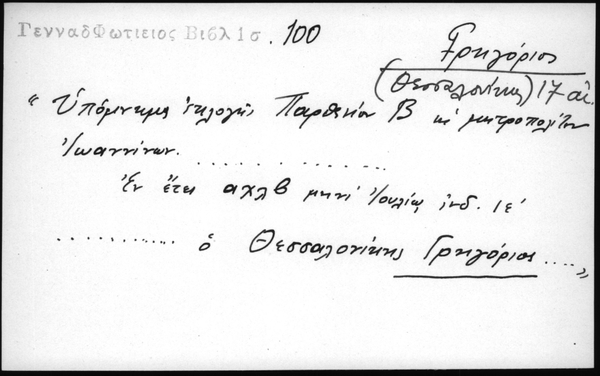 ΓενναδΦωτιειος Βιβλ 1σ. 100
Γρηγόριος
(Θεσσαλονίκης) 17 αἰ.
"Ὑπόμνημα ἐκλογῆς Παρθενίου Β κ μητροπολίτου
Ἰωαννίνων. . . . . . . . . . . . .
Ἐν ἔτει αχλβ μηνί Ἰουλίῳ ἰνδ. ιε'
. . . . . . . . . . . ὁ Θεσσαλονίκης Γρηγόριος ...."